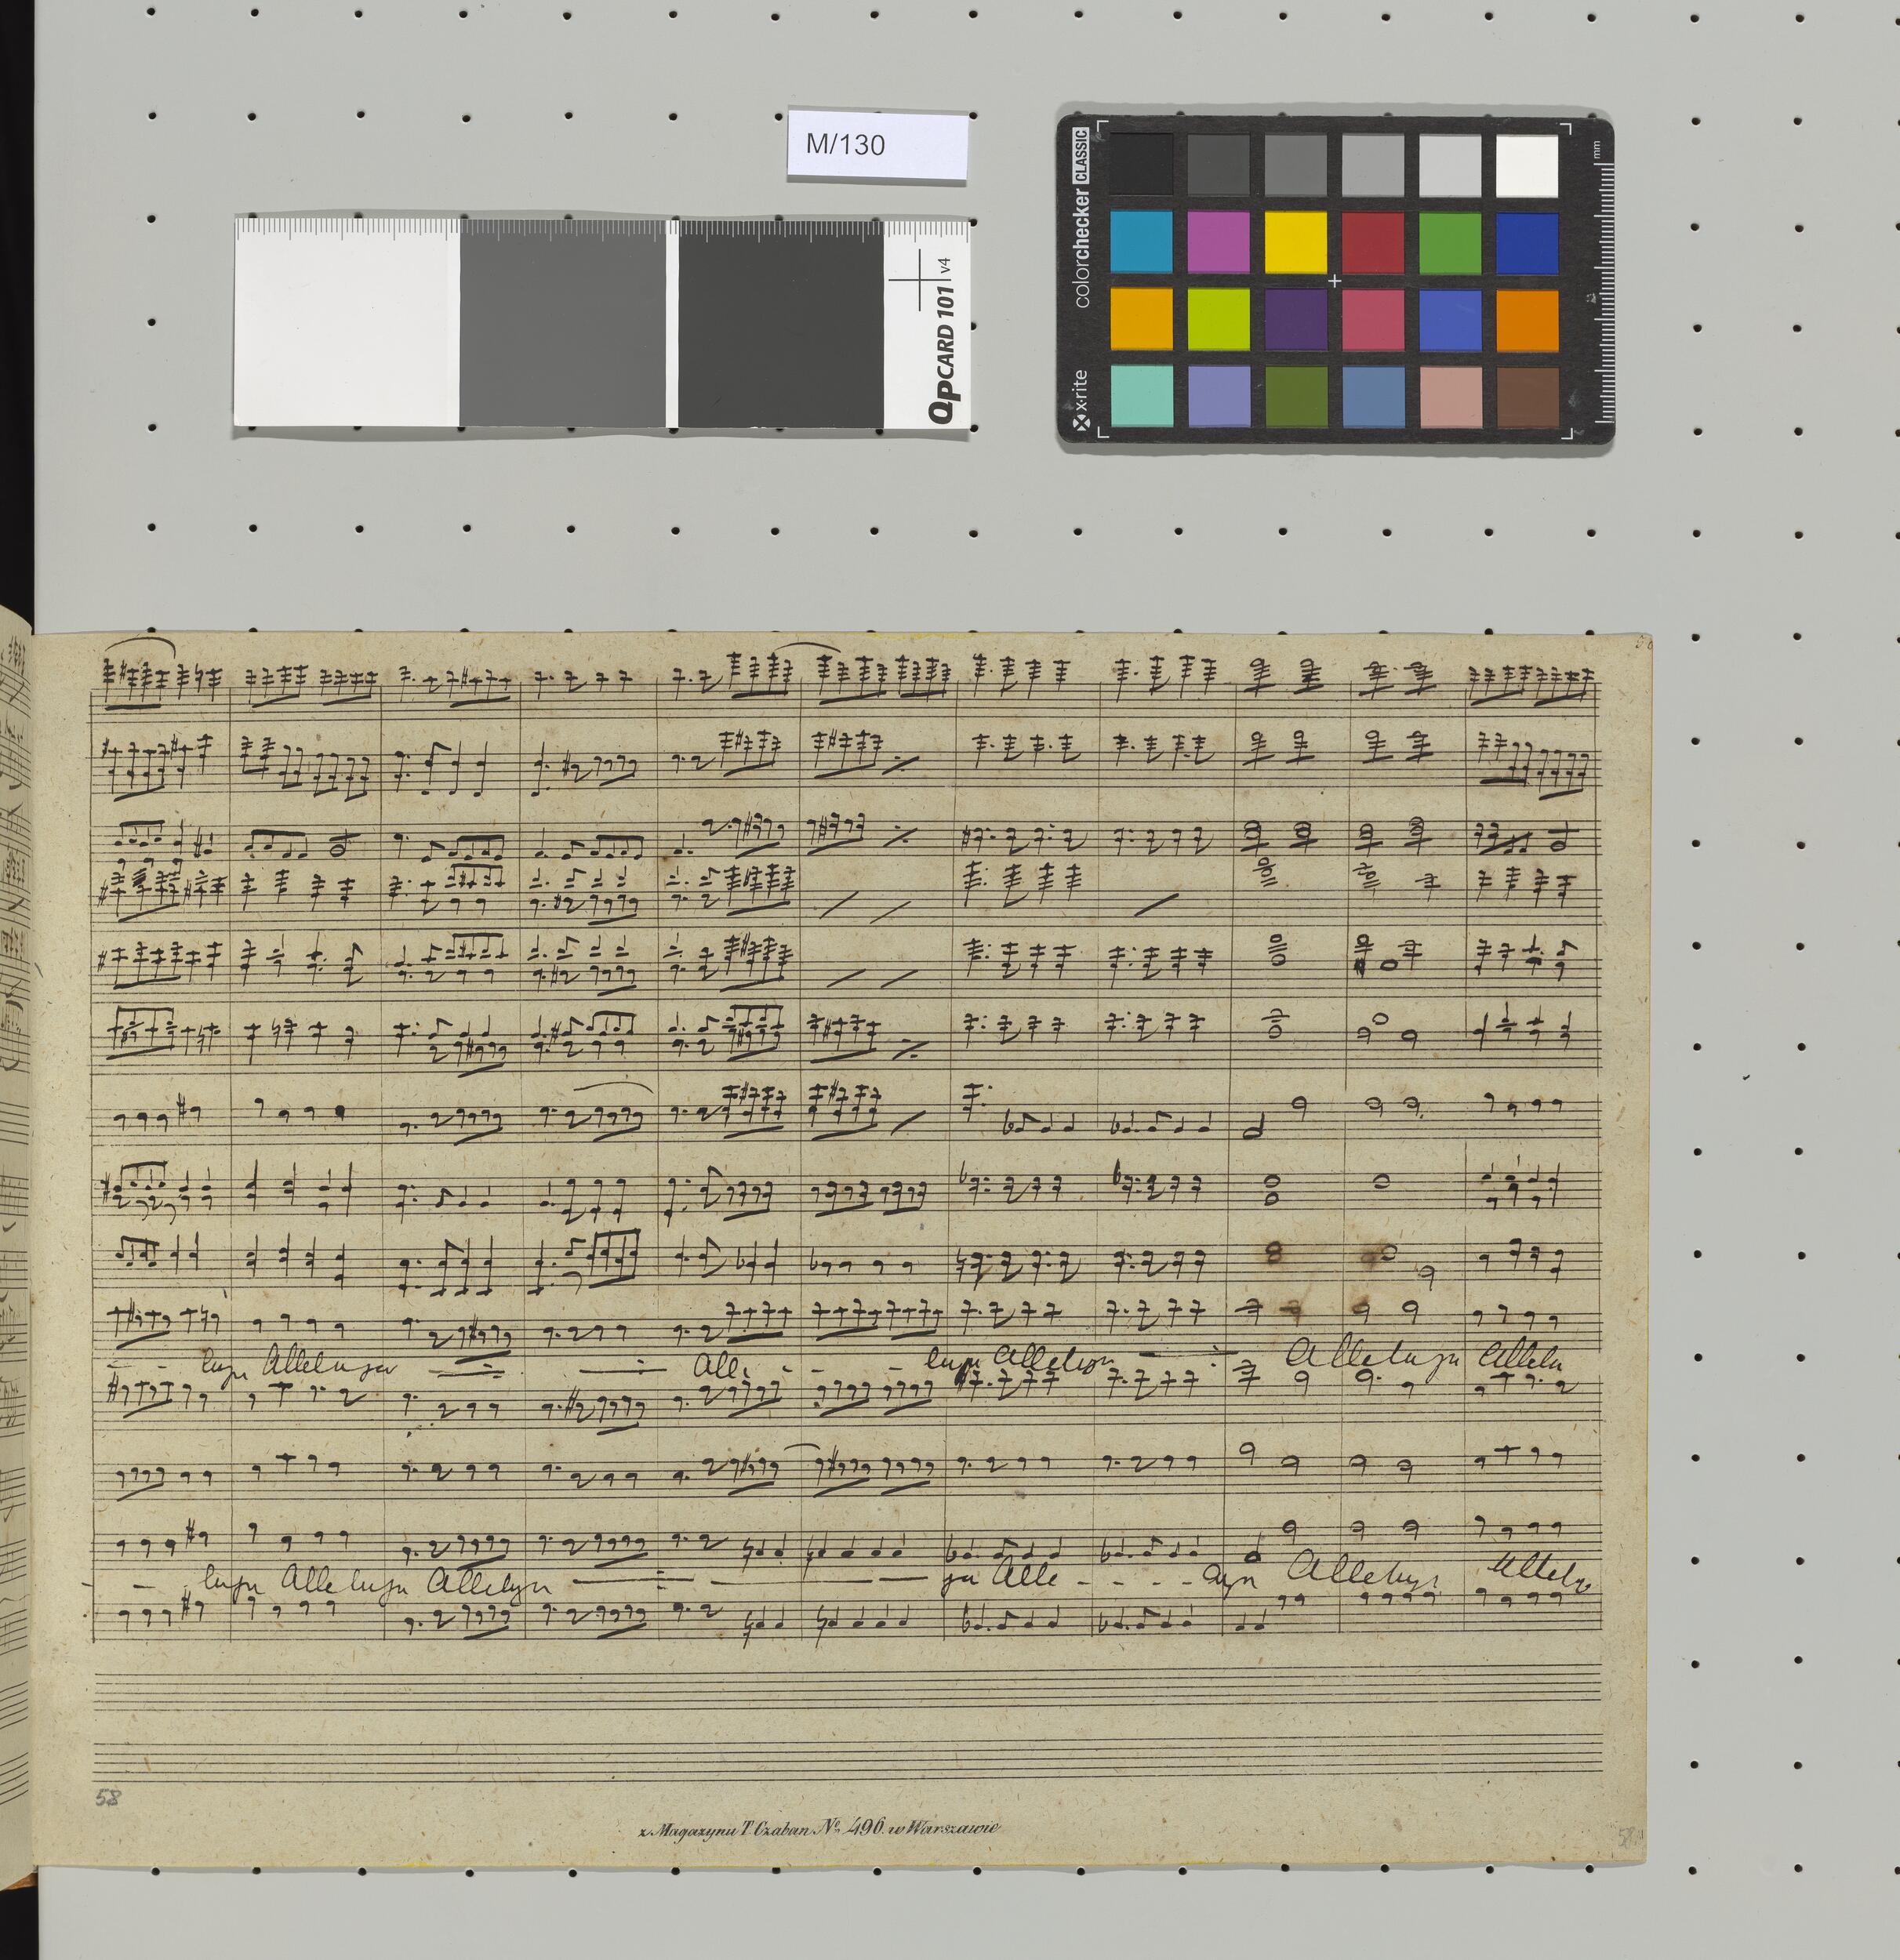 M/130
QPCARD 101 v4
x·rite
colorchecker CLASSIC
mm
luja Alleluja Alle - - luja Alleluja Alleluja Allelu
- - luja Alleluja Alleluja ja Alle - - - - luja Alleluja Allelu
58
z Magazynu T. Czaban No. 490. w Warszawie
58